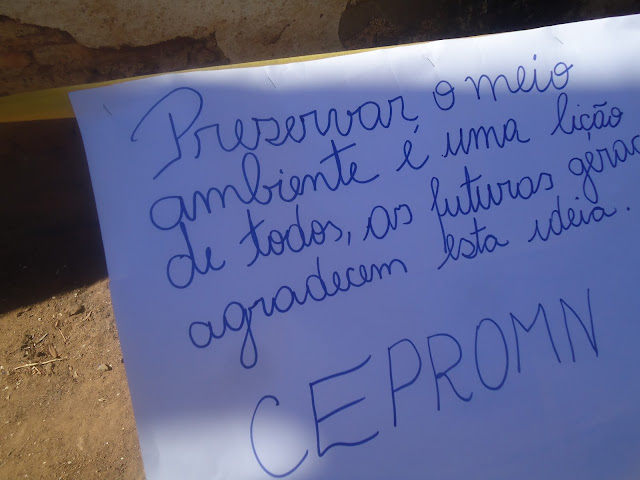 Preservar o meio
ambiente é uma lição
de todos, as futuras gerac
agradecem esta ideia.
CEPROMN